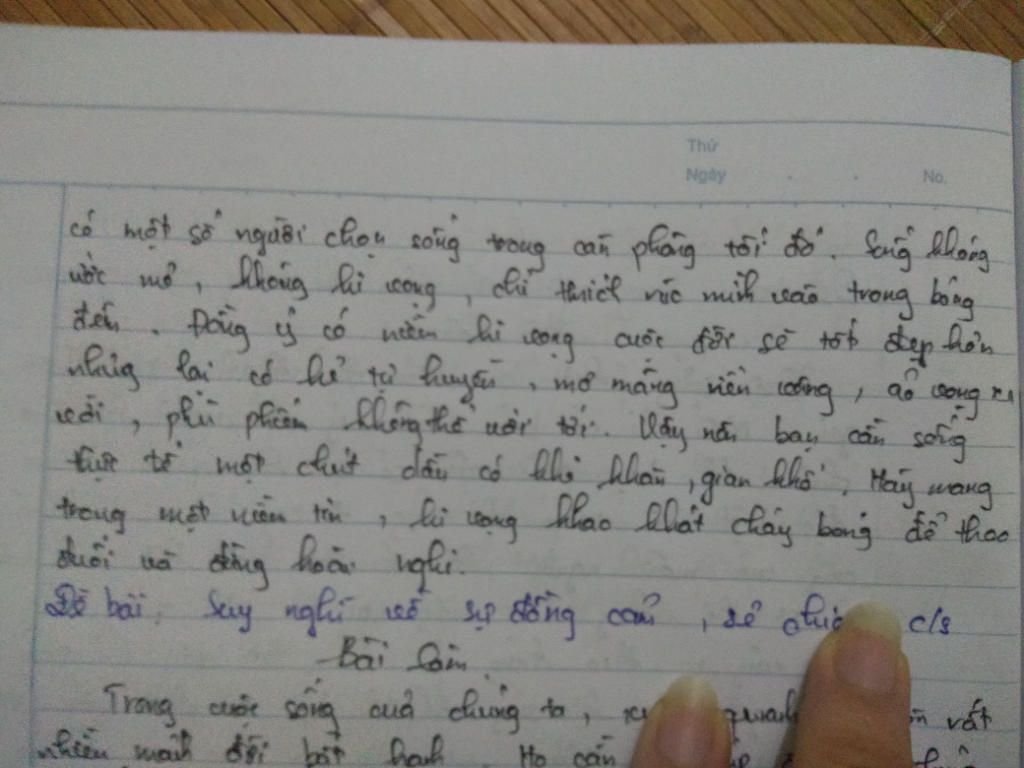 Thứ
Ngày . . No.
có một số người chọn sống trong căn phòng tối đó. Sống không
ước mơ, không hi vọng, chỉ thích rúc mình vào trong bóng
đến. Đồng ý có niềm hi vọng cuộc đời sẽ tốt đẹp hơn
nhưng lại có kẻ tự huyễn, mơ mộng viển vông, ảo vọng xa
vời, phù phiếm không thể với tới. Vậy nên bạn cần sống
thực tế một chút dẫu có khó khăn, gian khổ. Hãy mang
trong một niềm tin, hi vọng khao khát cháy bỏng để theo
đuổi và đừng hoài nghi.
Đề bài. Suy nghĩ về sự đồng cảm, sẻ c/s
Bài làm
Trong cuộc sống của chúng ta, vất
nhiều mảnh đời bất hạnh. Họ cần